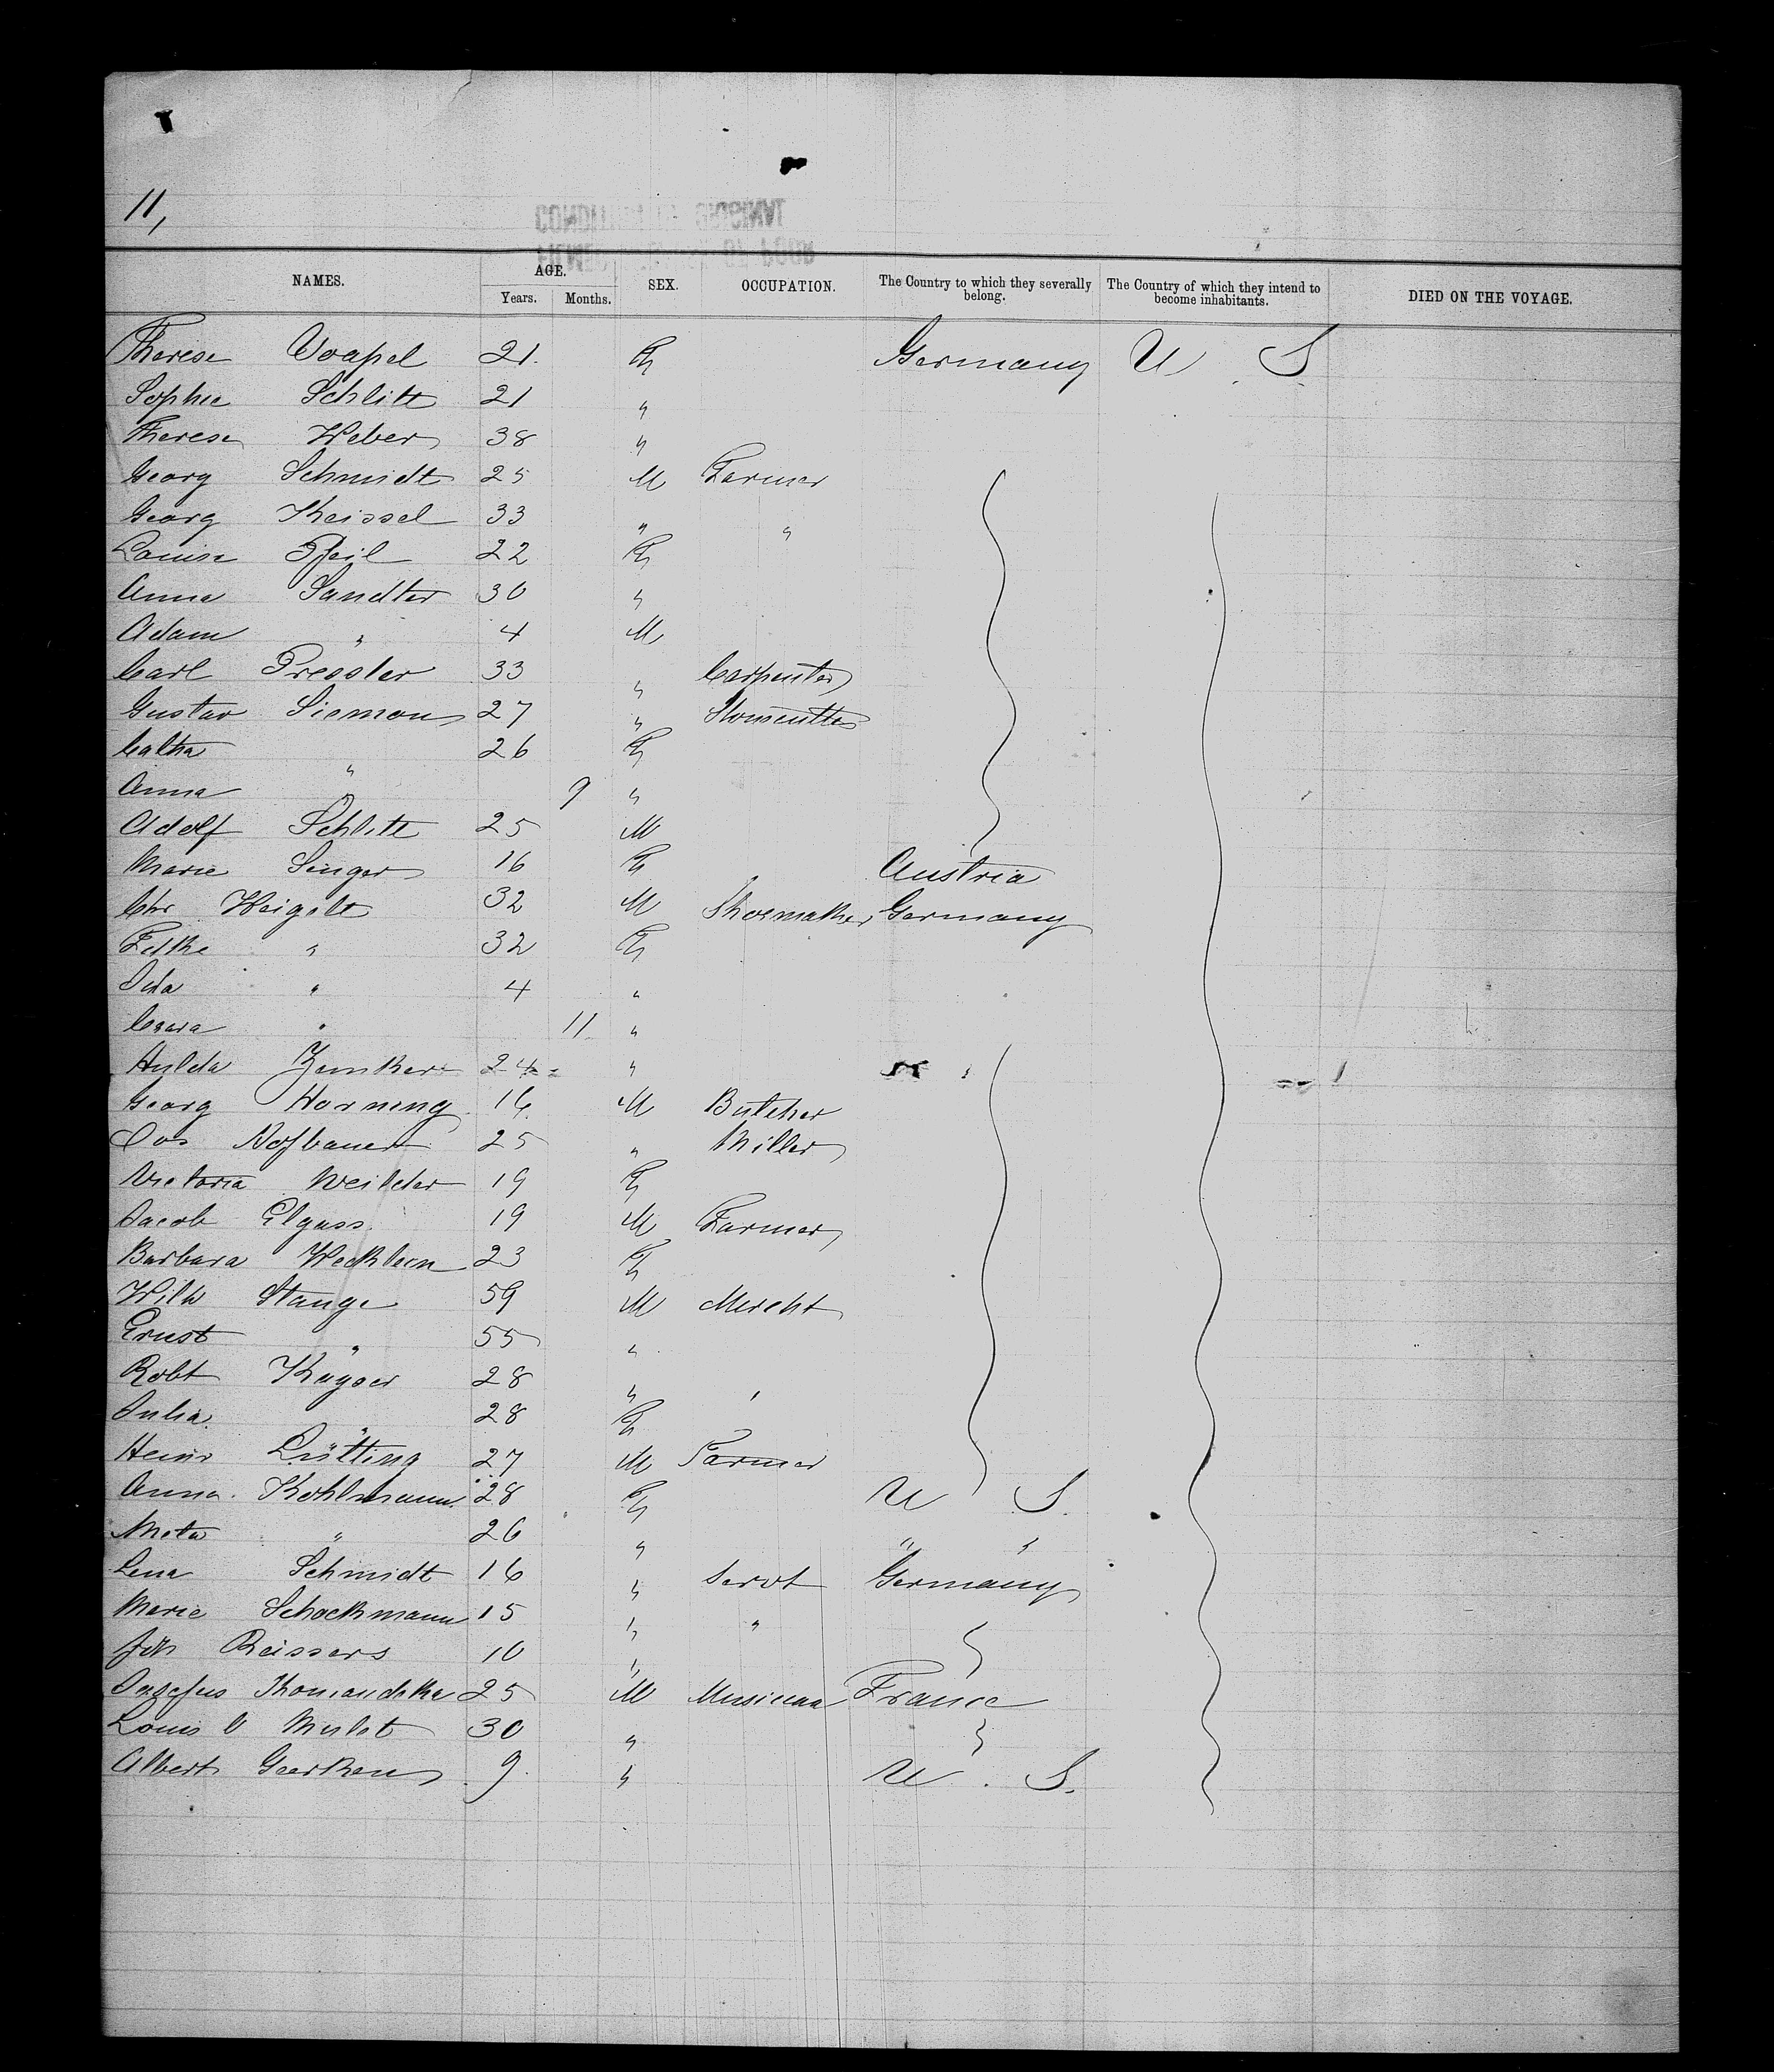 11,
NAMES. AGE. SEX. OCCUPATION. The Country to which they severally belong. The Country of which they intend to become inhabitants. DIED ON THE VOYAGE.
Years. Months.
Therese Voapel 21. F Germany U. S.
Sophie Schlitt 21 "
Therese Weber 38 "
Georg Schmidt 25 M Farmer
Georg Keissel 33 " "
Louise Pfeil 22 F
Anna Sandter 30 "
Adam " 4 M
Carl Pressler 33 " Carpenter
Gustav Siemon 27 "
Catha " 26 F
Anna " 9 "
Adolf Schlitt 25 M
Marie Singer 16 F Austria
Chr Weigelt 32 M Shoemaker Germany
" 32 F
Ida " 4 "
Clara " 11 "
Hulda Zenker 24 "
Georg Horning 16 M Butcher
Jos Hofbauer 25 " Miller
Victoria 19 F
Jacob Elgass 19 M Farmer
Barbara Wecklein 23 F
Wilh Stange 59 M Mercht
Ernst " 55 "
Robt Kayser 28 " "
Julia " 28 F
Heinr Lütting 27 M Farmer
Anna Kohlmann 28 F U S.
Meta " 26 " " "
Lena Schmidt 16 " Servt Germany
Marie Schockmann 15 " "
Joh Reissers 10 "
25 M Musician France
Louis V Mulot 30 "
Albert Geerken 9 " U. S.